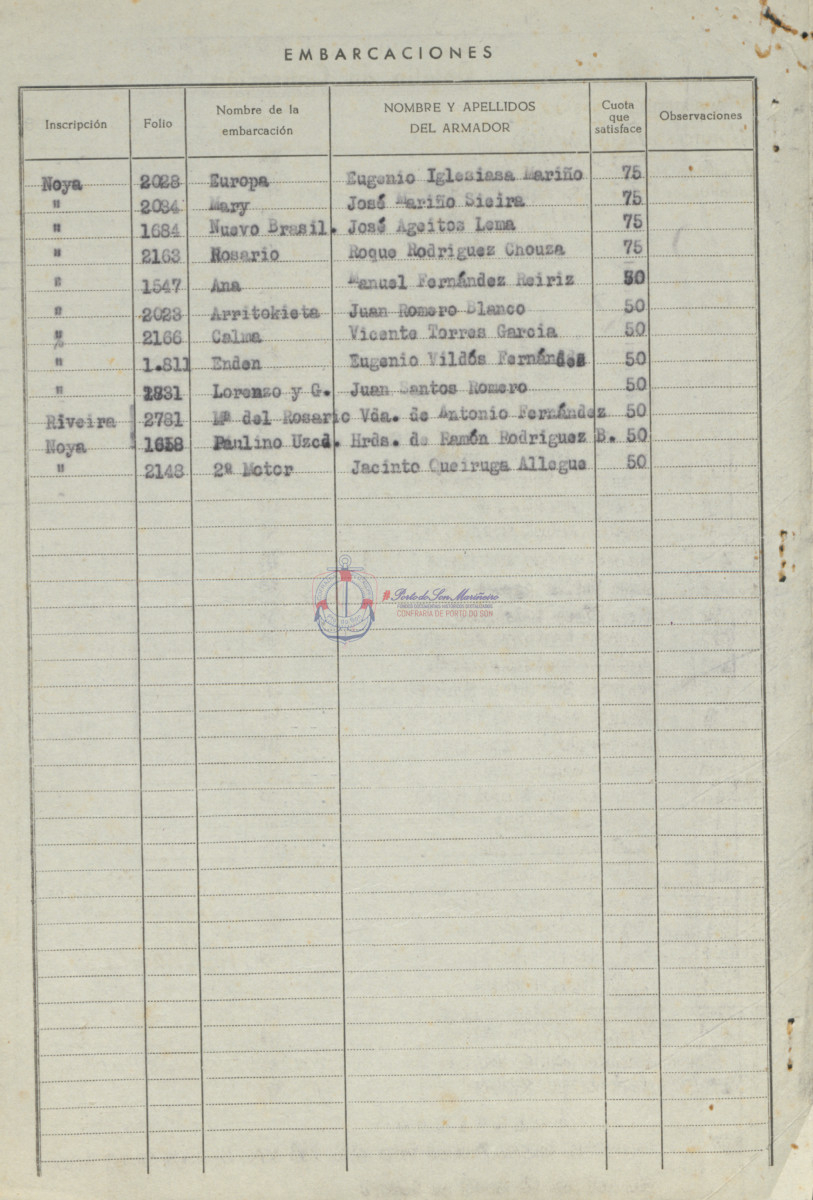 EMBARCACIONES
Inscripción Folio Nombre de la embarcación NOMBRE Y APELLIDOS DEL ARMADOR Cuota que satisface Observaciones
Noya 2028 Europa Eugenio Iglesiasa Mariño 75
" 2084 Mary José Mariño Sieira 75
" 1684 Nuevo Brasil. José Ageitos Lema 75
" 2163 Rosario Roque Rodriguez Chouza 75
" 1547 Ana Manuel Fernández Reiriz 50
" 2023 Arritokieta Juan Romero Blanco 50
" 2166 Calma Vicente Torres Garcia 50
" 1.811 Enden Eugenio Vildós Fernández 50
" Lorenzo y G. Juan Santos Romero 50
Riveira 2781 Mª del Rosario Vda. de Antonio Fernández 50
Noya Paulino Uzcd. Hrds. de Ramón Rodriguez B. 50
" 2148 2º Motor Jacinto Queiruga Allegue 50
Porto do Son Mariñeiro
CONFRARIA DE PORTO DO SON